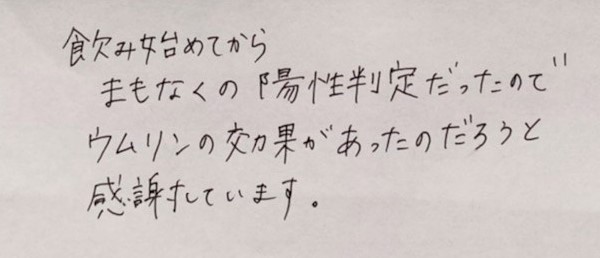 飲み始めてから
まもなくの陽性判定だったので
ウムリンの効果があったのだろうと
感謝しています。